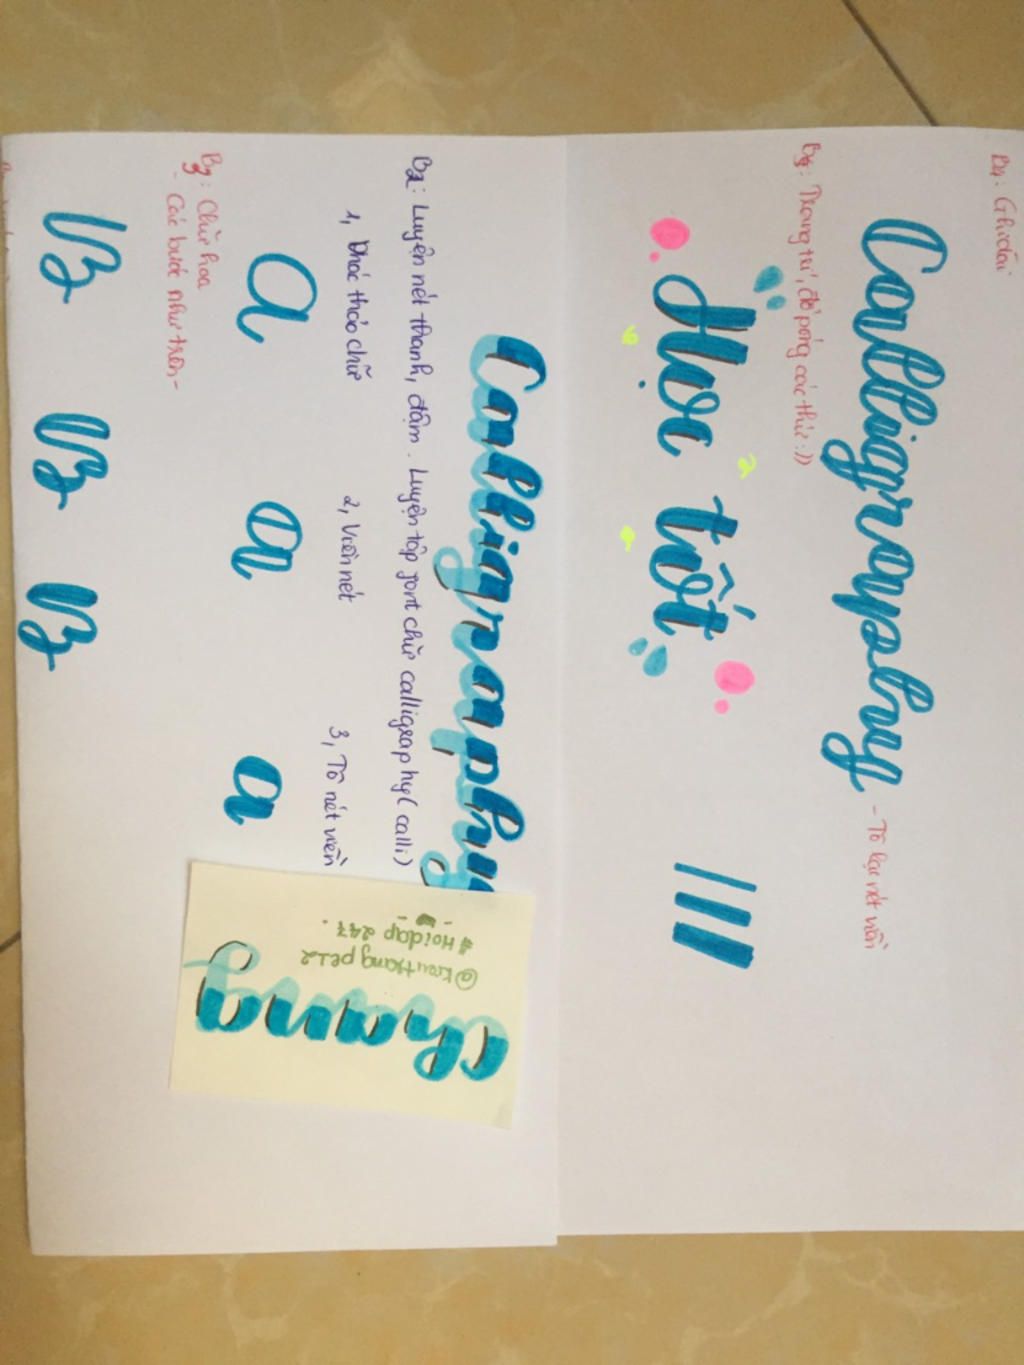 B4: Ghi dài
Calligraphy
- Tô lại nét viền
B5: Trang trí, đổ bóng các thứ :))
Học tốt
Calligraphy
B2: Luyện nét thanh, đậm. Luyện tập font chữ calligraphy (calli)
1, Phác thảo chữ
2, Viền nét
3, Tô nét viền
a a a
B3: Chữ hoa
- Các bước như trên -
B B B
Chang
@kieuthangpe12
#Hoidap 247.